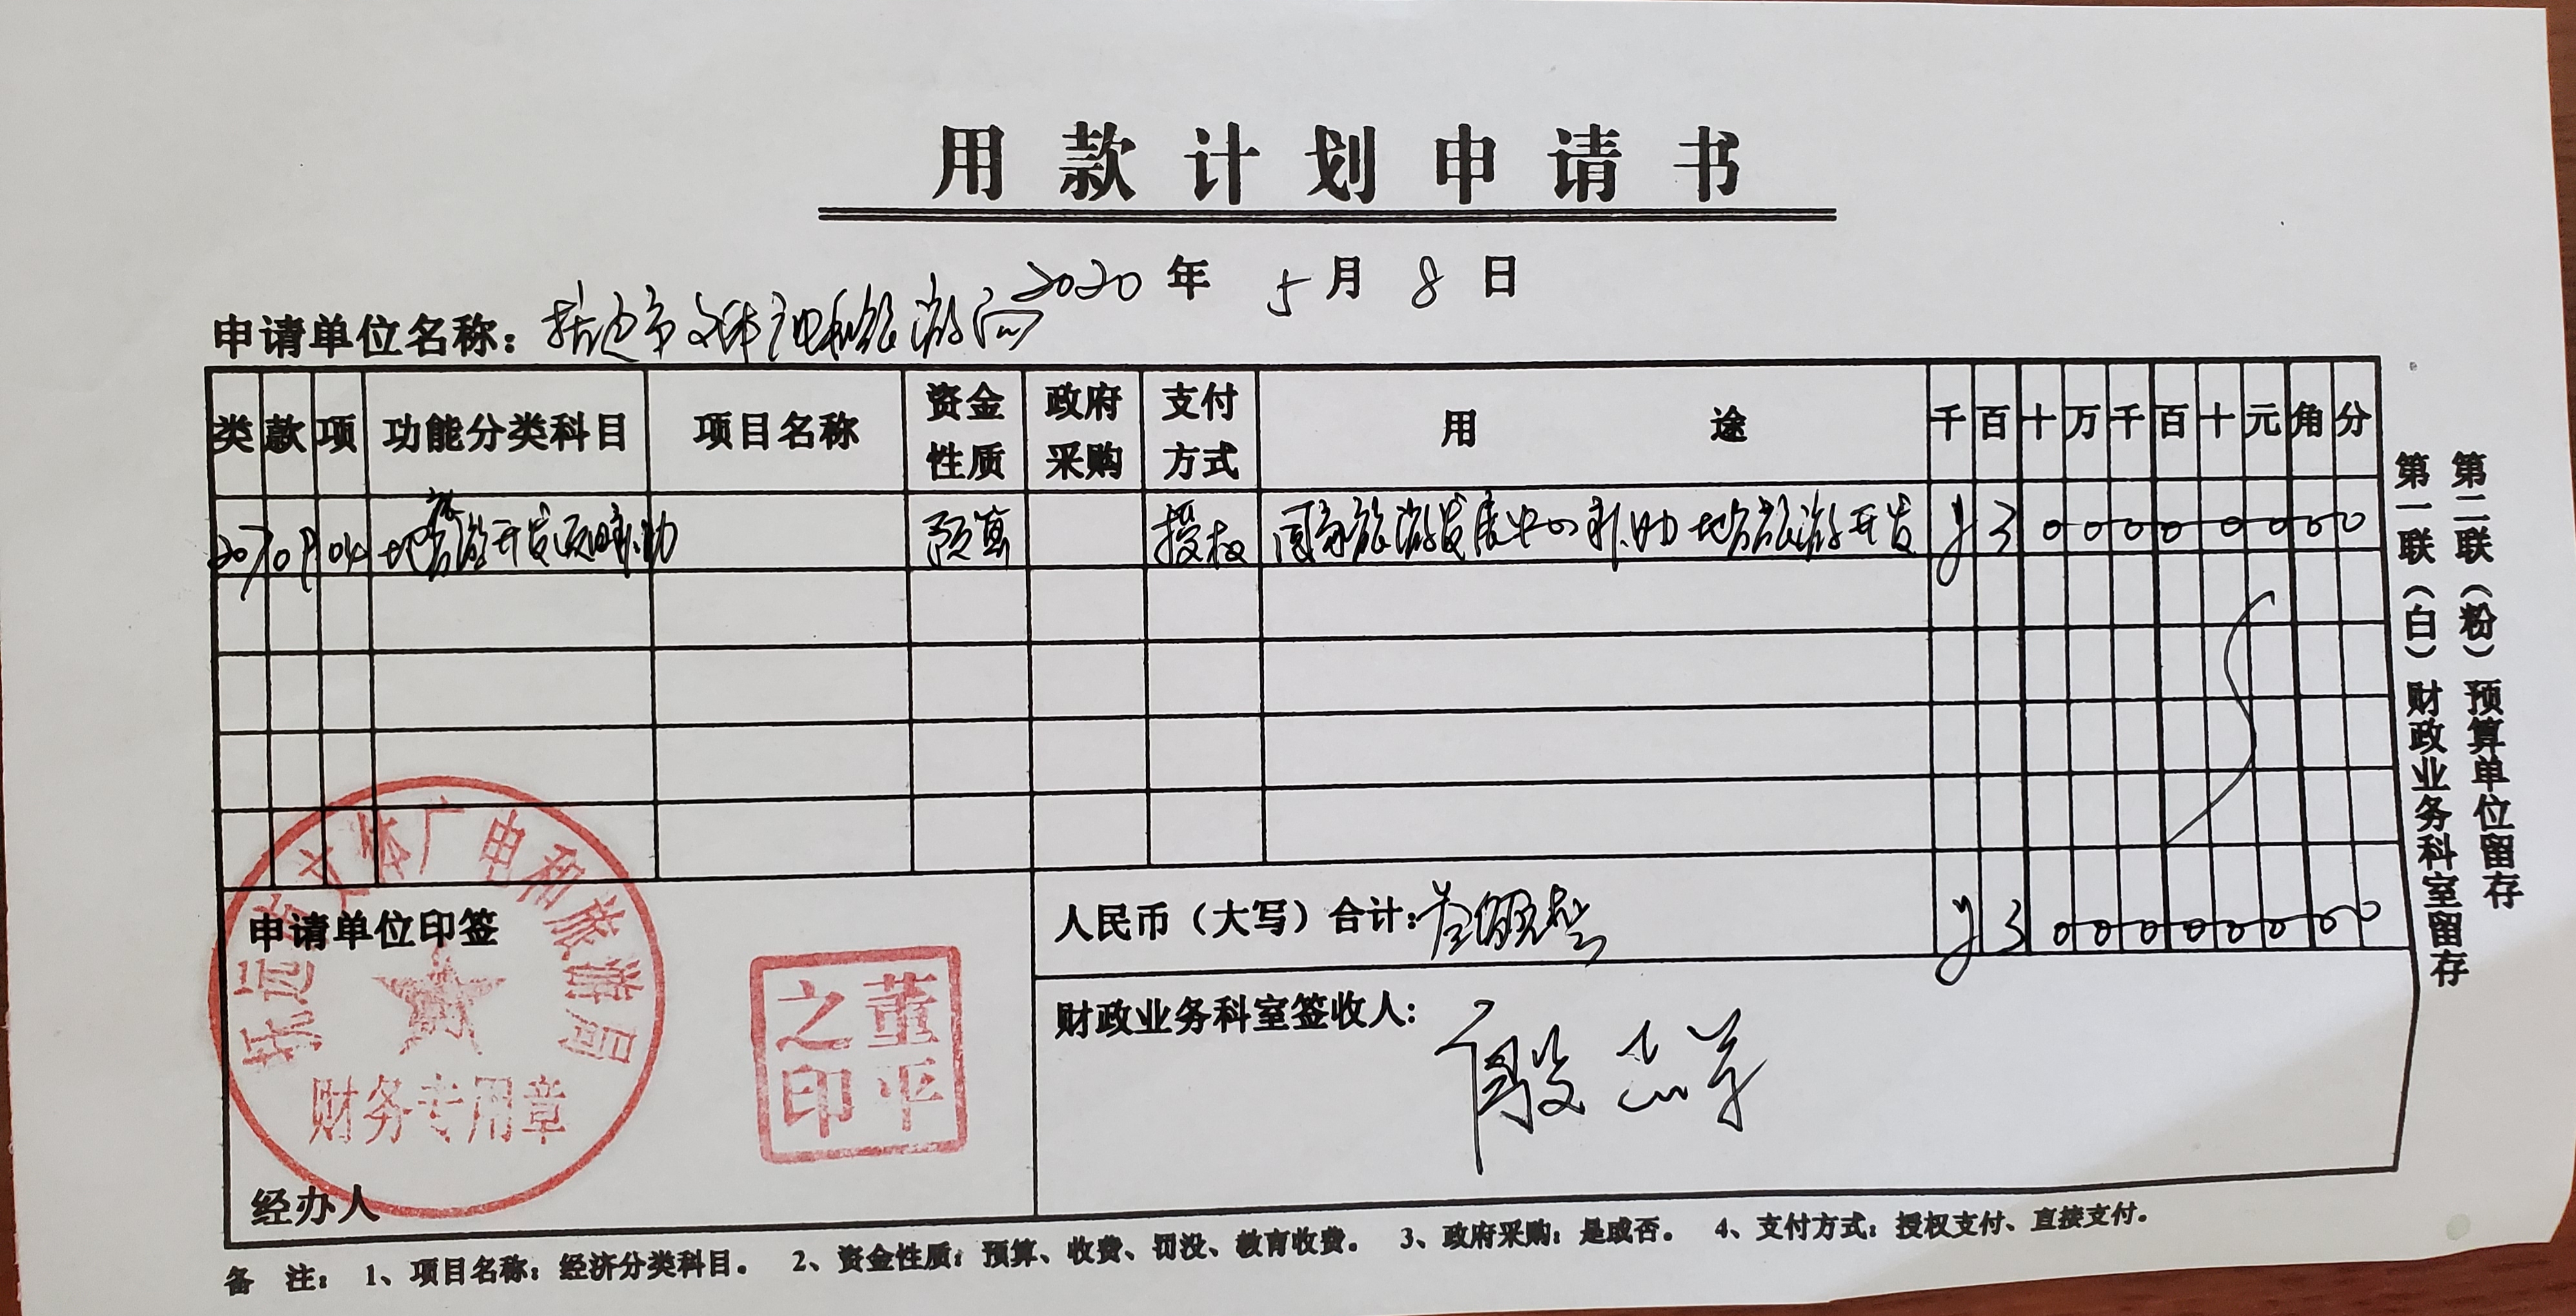 用款计划申请书
2020年5月8日
申请单位名称：抚远市文体广电和旅游局
类 款 项 功能分类科目 项目名称 资金性质 政府采购 支付方式 用途 千 百 十 万 千 百 十 元 角 分
207 09 04 地方旅游开发项目补助 预算 授权 国家旅游发展中心补助地方旅游开发 ¥ 3 0 0 0 0 0 0 0 0
申请单位印签
人民币（大写）合计：叁佰万元整 ¥ 3 0 0 0 0 0 0 0 0
财政业务科室签收人：
经办人
抚远市文体广电和旅游局
财务专用章
董平之印
备 注： 1、项目名称：经济分类科目。 2、资金性质：预算、收费、罚没、教育收费。 3、政府采购：是或否。 4、支付方式：授权支付、直接支付。
第一联（白）财政业务科室留存
第二联（粉）预算单位留存